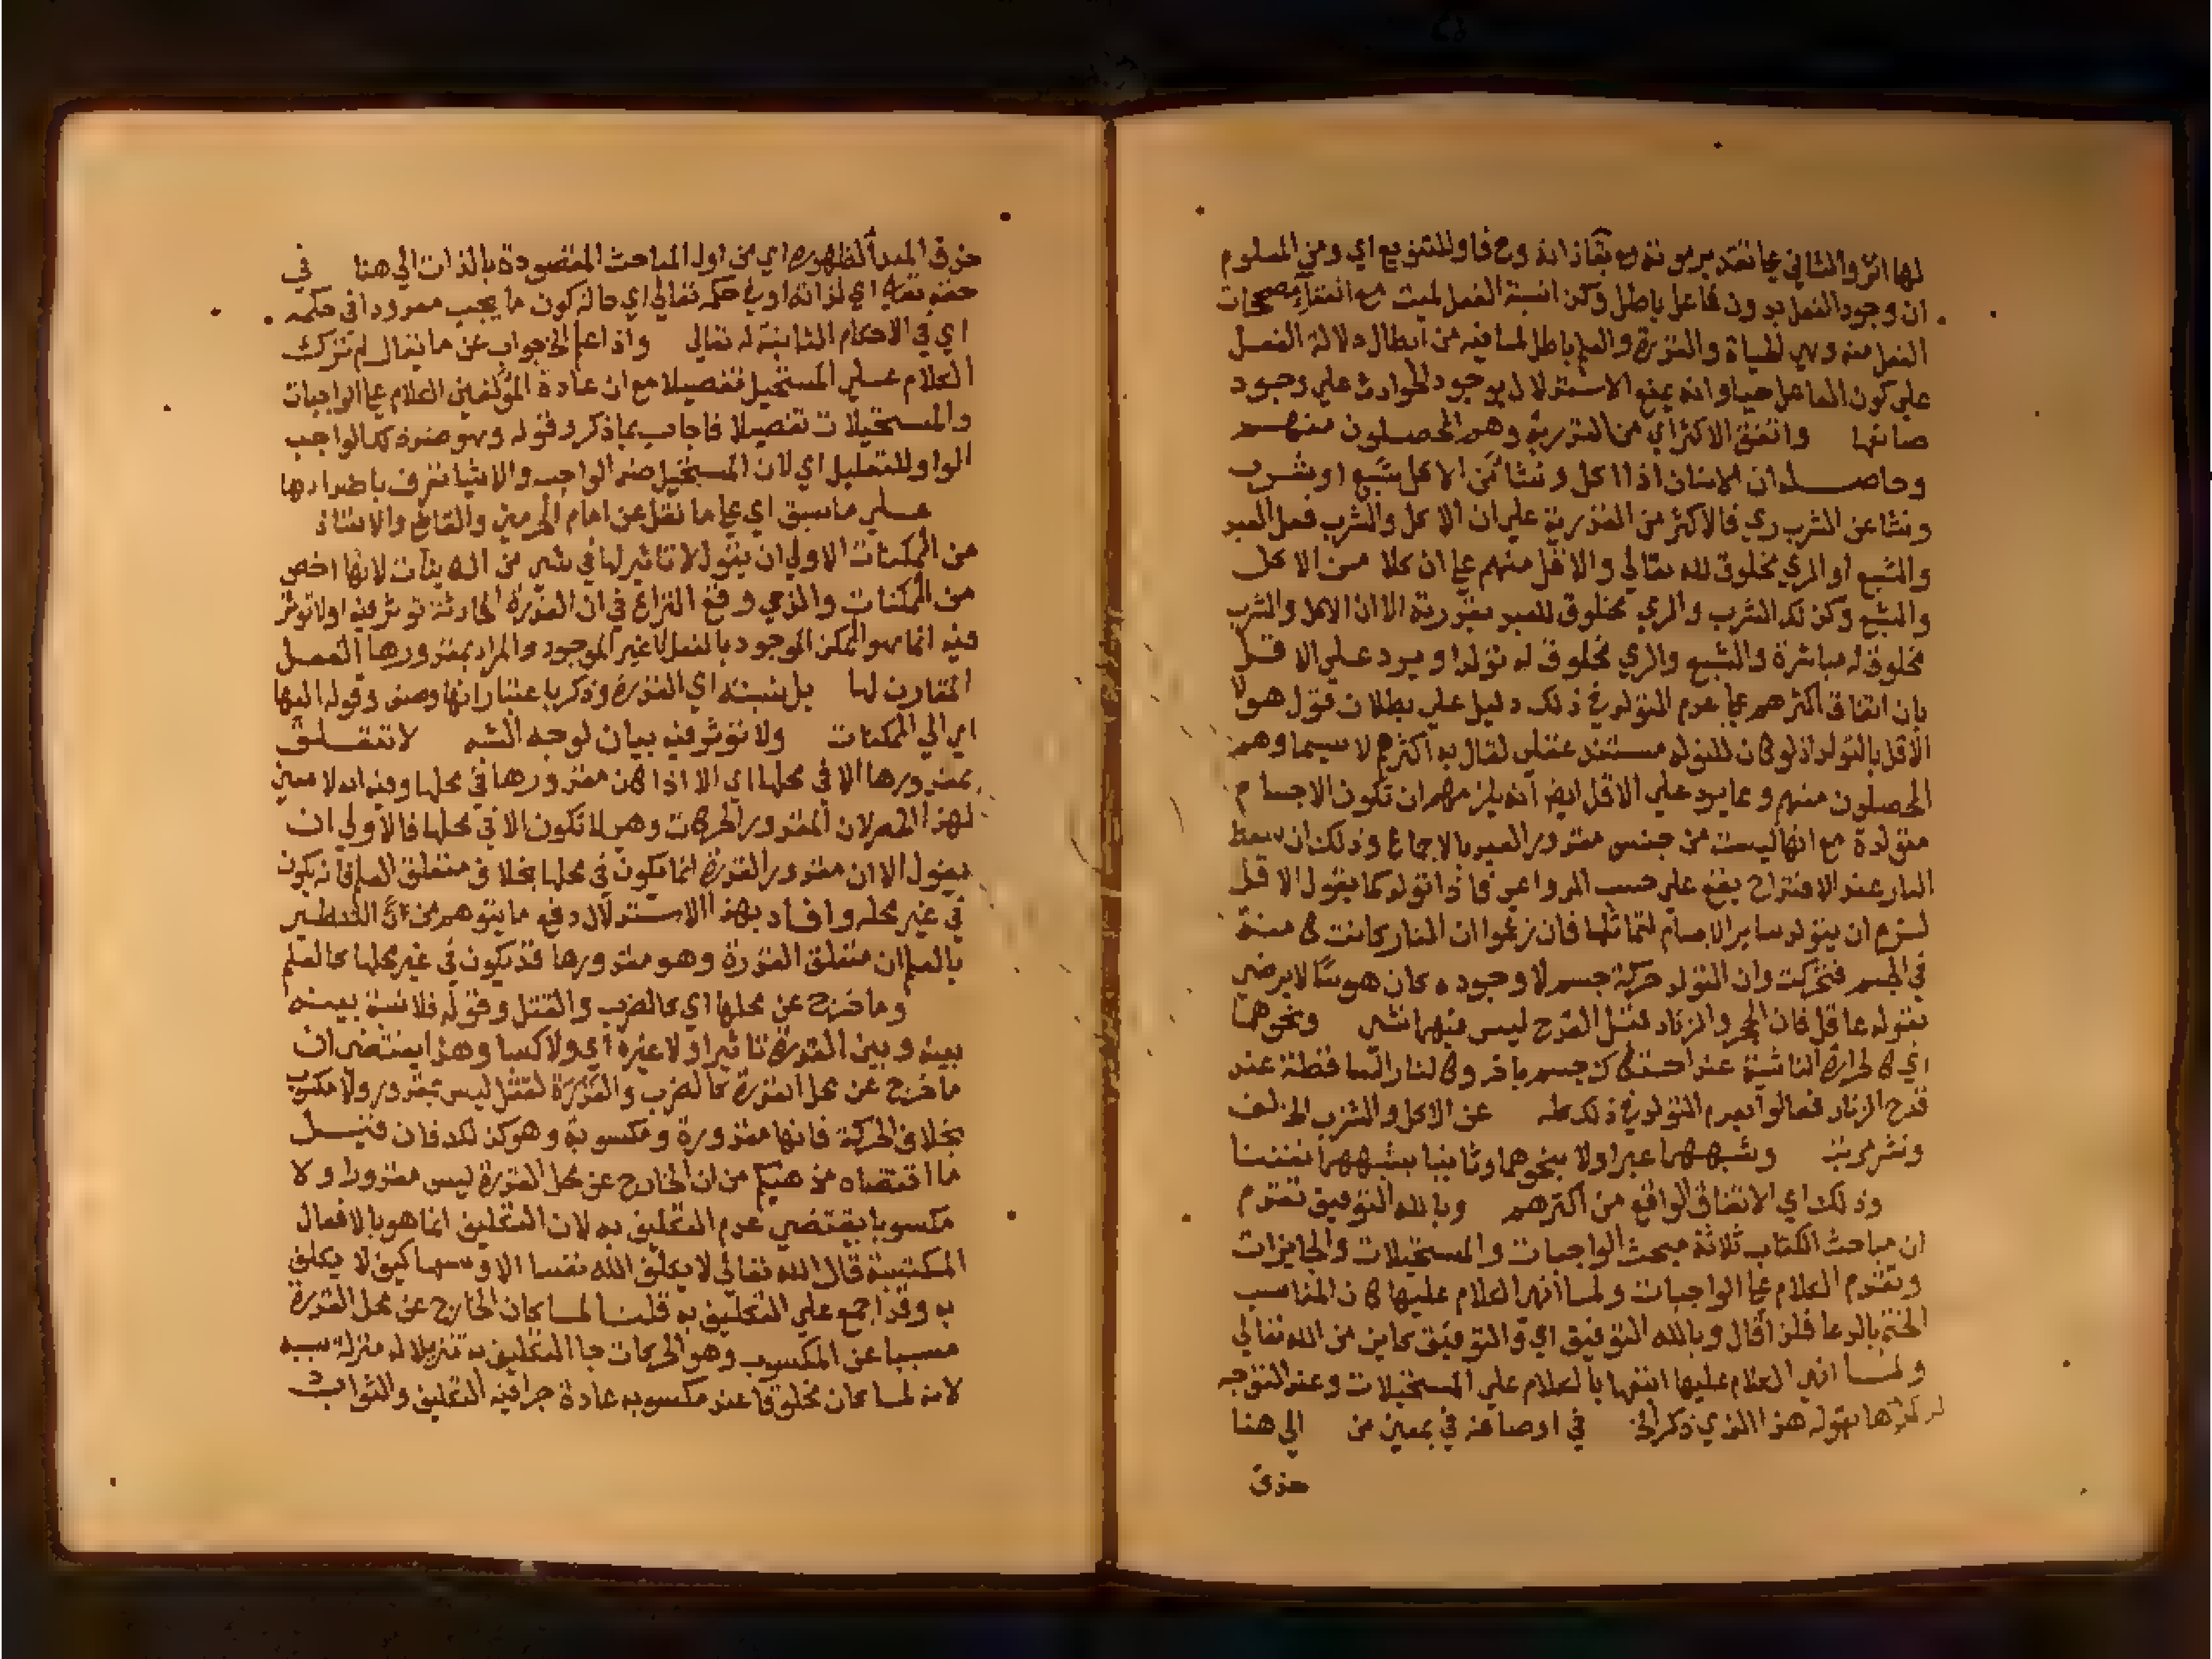 لها اثر والثاني على تقدير موته مع بقا ذاته وح فاو للتنويع اي ومن المعلوم
ان وجود الفعل بدون فاعل باطل وكذا نسبة الفعل لميت مع انتفاء مصححات
الفعل منه وهي الحياة والقدرة والعلم باطل لما فيه من ابطال دلالة الفعل
على كون الفاعل حيا وانه يمنع الاستدلال بوجود الحوادث علي وجود
صانعها واتفق الاكثر اي من القدرية وهم المحصلون منهم
وحاصله ان الانسان اذا اكل ونشا عن الاكل شبع او شرب
ونشا عن الشرب ري فالاكثر من القدرية علي ان الاكل والشرب فعل العبد
والشبع او الري مخلوق لله تعالي والاقل منهم على ان كلا من الاكل
والشبع وكذلك الشرب والري مخلوق للعبد بقدرته الا ان الاكل والشرب
مخلوق له مباشرة والشبع والري مخلوق له تولدا ويرد علي الاقل
بان اتفاق اكثرهم على عدم التولد في ذلك دليل علي بطلان قول هولا
الاقل بالتولد اذ لو كان للتولد مستند عقلي لقال به اكثرهم لا سيما وهم
المحصلون منهم ومما يرد علي الاقل ايضا انه يلزمهم ان تكون الاجسام
متولدة مع انها ليست من جنس مقدور العبد بالاجماع وذلك ان سقط
النار عند الاقتداح يقع علي حسب الدواعي فاذا تولد كما يقول الاقل
لزم ان يتولد ساير الاجسام لتماثلها فان زعموا ان النار كانت كامنة
في الجسم فتحركت وان التولد حركة جسم لا وجوده كان هوسا لا يرضي
بقوله عاقل فان الحجر والزناد قبل القدح ليس فيهما شي ونحوهما
اي كالحرارة الناشية عند احتكاك جسم باخر وكالنار الساقطة عند
قدح الزناد فقالوا بعدم التولد في ذلك كله عن الاكل والشرب الخ لف
ونشر مرتب وشبههما عبر اولا بنحوهما وثانيا بشبههما تفننا
وذلك اي الاتفاق الواقع من اكثرهم وبالله التوفيق تقدم
ان مباحث الكتاب ثلاثة مبحث الواجبات والمستحيلات والجايزات
وتقدم الكلام على الواجبات ولما انهي الكلام عليها كان المناسب
الختم بالدعا فلذا قال وبالله التوفيق اي والتوفيق كاين من الله تعالي
ولما انهي الكلام عليها انتهي بالكلام علي المستحيلات وعند التوجه
لذكرها بقوله هذا الذي ذكر الخ في اوصافه في بمعني من الي هنا
حذف
حذف المبدأ لظهوره اي من اول المباحث المقصودة بالذات الي هنا في
حقه تعالي اي لذاته او في حكمه تعالي اي حالة كون ما يجب معدودا في حكمه
اي في الاحكام الثابتة له تعالي واذ اعلم الخ جواب عن ما يقال لم تترك
الكلام علي المستحيل تفصيلا مع ان عادة المؤلفين الكلام على الواجبات
والمستحيلات تفصيلا فاجاب بما ذكر وقوله وهو ضد ذلك الواجب
الواو للتعليل اي لان المستحيل ضد الواجب والاشيا تعرف باضدادها
علي ما سبق اي على ما نقل عن امام الحرمين والقاضي والاستاذ
من الممكنات الاولي ان يقول لا تاثير لها في شي من الكاينات لانها اخص
من الممكنات والذي وقع النزاع في ان القدرة الحادثة توثر فيه او لا توثر
فيه انما هو الممكن الموجود بالفعل لا غير الموجود والمراد بمقدورها الفعل
المقارن لها بل نسبته اي القدرة وذكر باعتبار انها وصف وقوله اليها
اي الي الممكنات ولا توثر فيه بيان لوجه الشبه لا تتعلق
بمقدورها الا في محلها اي الا اذا كان مقدورها في محلها وفيه انه لا معني
لهذا الحصر لان المقدور الحركات وهي لا تكون الا في محلها فالاولي ان
يقول الا ان مقدور القدرة انما يكون في محلها بخلاف متعلق العلم فانه يكون
في غير محله وافاد بهذا الاستدلال دفع ما يتوهم من ان التنظير
بالعلم ان متعلق القدرة وهو مقدورها قد يكون في غير محلها كالعلم
وما خرج عن محلها اي كالضرب والقتل وقوله فلا نسبة بينه
بينه وبين القدرة تاثيرا ولا غيره اي ولا كسبا وهذا يقتضي ان
ما خرج عن محل القدرة كالضرب والقتل ليس بمقدور ولا مكسوب
بخلاف الحركة فانها مقدورة ومكسوبة وهو كذلك فان قيل
ما اقتضاه مذهبكم من ان الخارج عن محل القدرة ليس مقدورا ولا
مكسوبا يقتضي عدم التكليف به لان التكليف انما هو بالافعال
المكتسبة قال الله تعالي لا يكلف الله نفسا الا وسعها كيف لا يكلف
به وقد اجمع علي التكليف به قلنا لما كان الخارج عن محل القدرة
مسببا عن المكسوب وهو الحركات جا التكليف به تنزيلا له منزلة سببه
لانه لما كان مخلوقا عند مكسوبه عادة جرا فيه التكليف والثواب